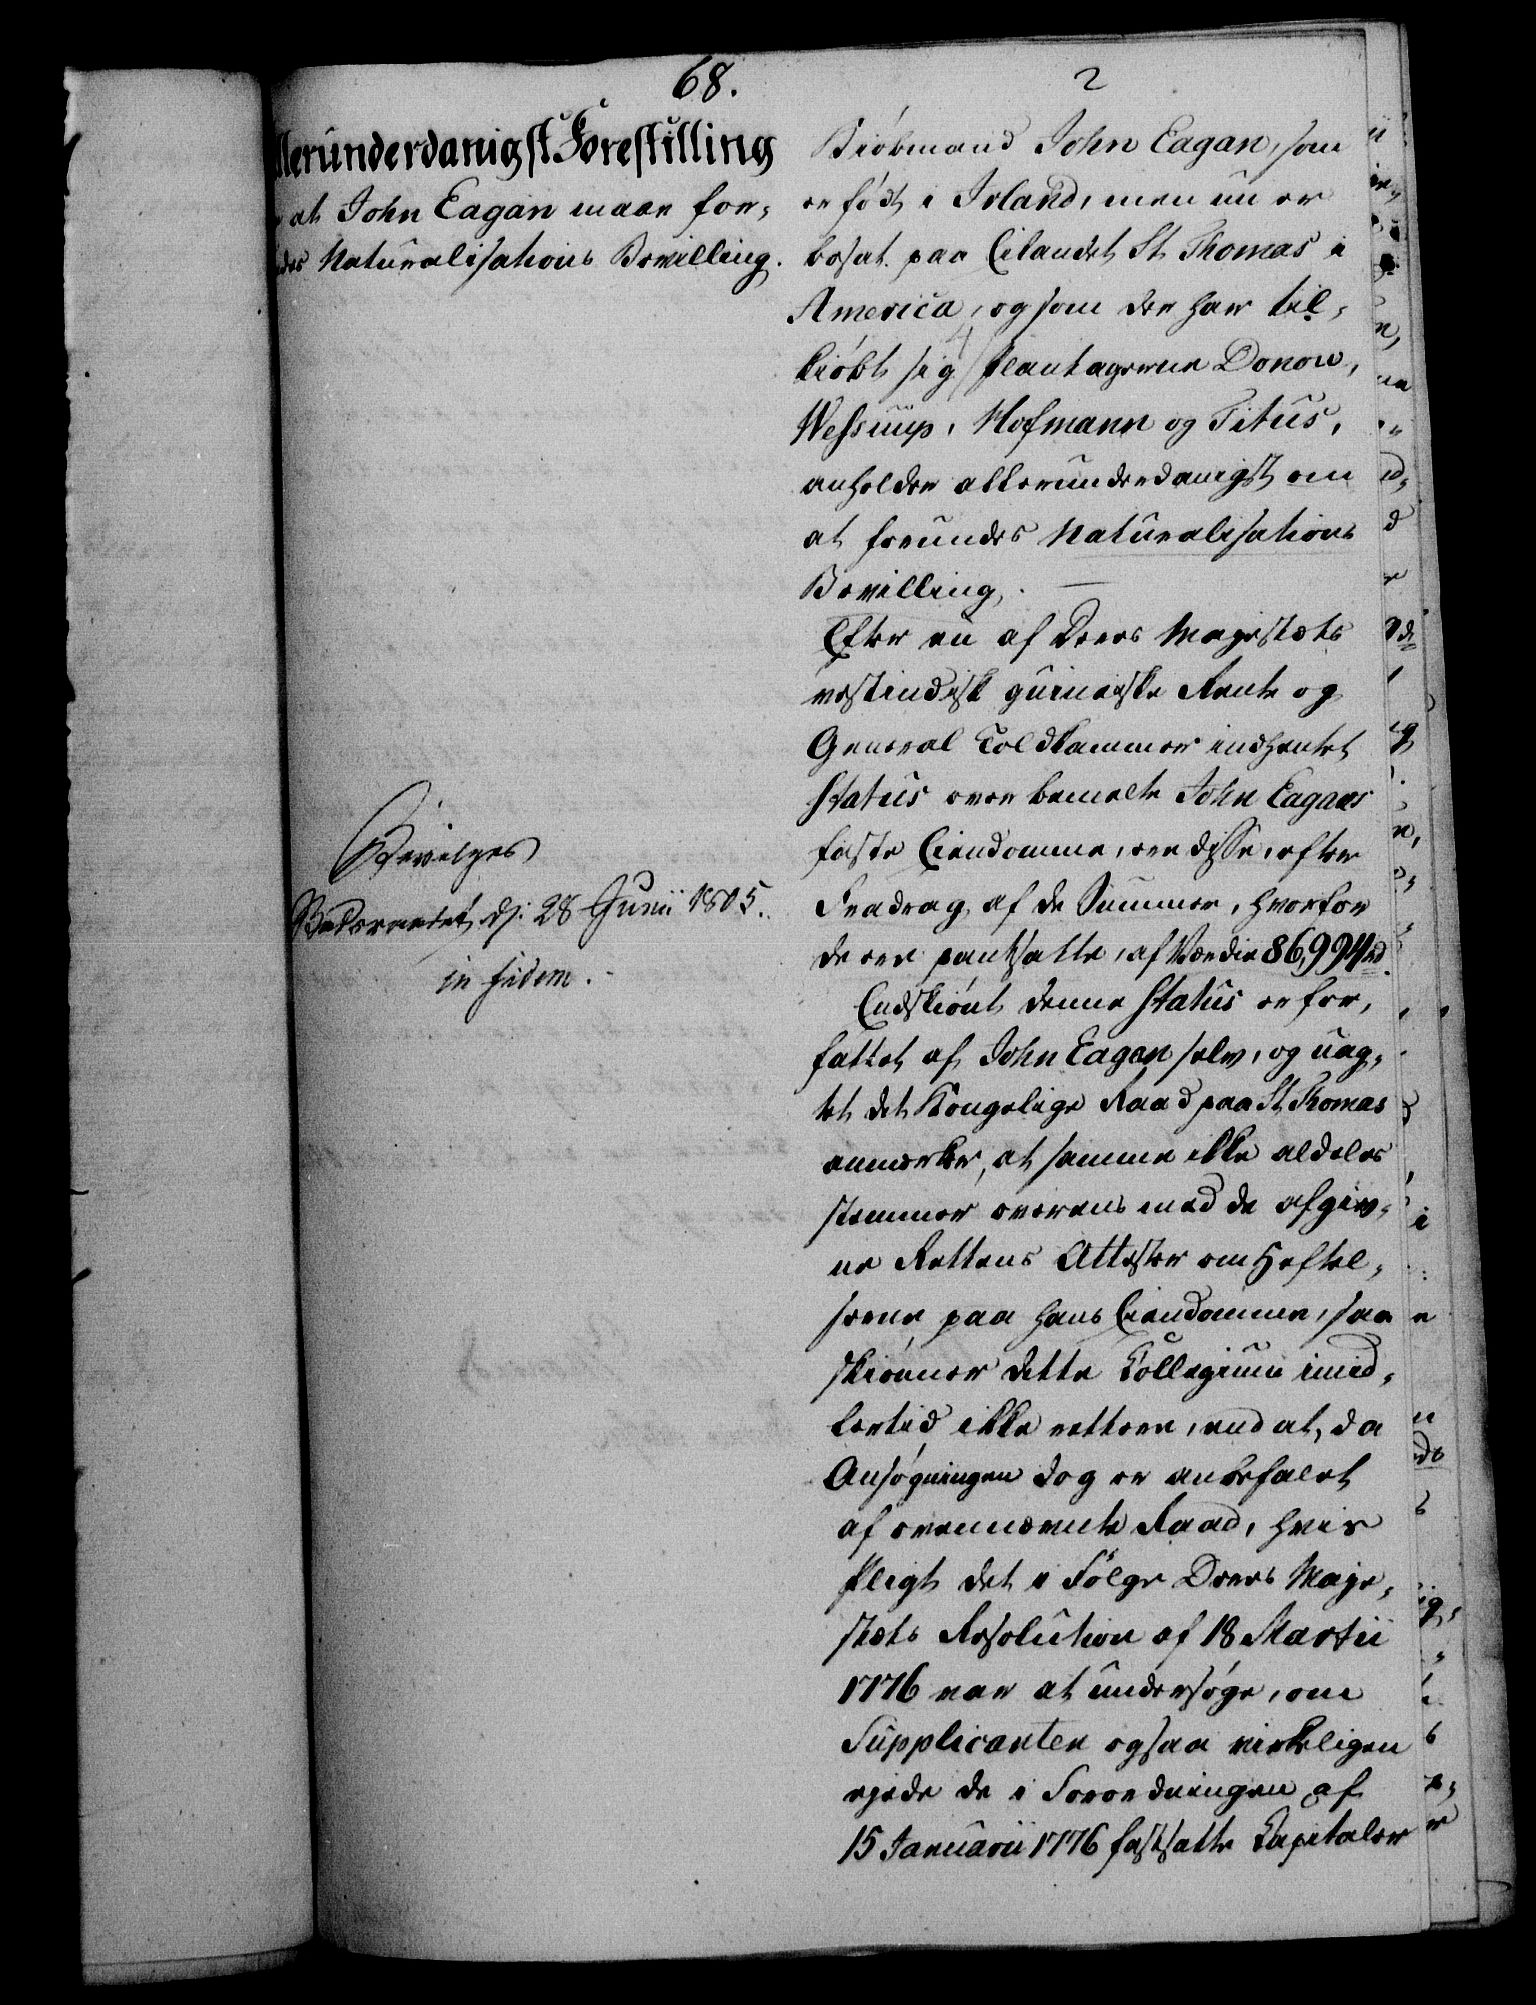 68.
2
llerunderdanigst Forestilling
at John Eagan maae for-
des Naturalisations Bevilling.
Bevilges
d. 28 Junii 1805.
in fidem.
Kiøbmand John Eagan, som
er født i Irland, men nu er
bosat paa Eilandet St Thomas i
America, og som der har til-
kiøbt sig 4 Plantagerne Donou,
Wessuup, Hofmann og Titus,
anholder allerunderdanigst om
at forundes Naturalisations
Bevilling. —
Efter en af Deres Majestæts
vestindisk guineiske Rente og
General Toldkammer indhentet
Status over bemelte John Eagans
faste Eiendomme, ere disse, efter
Fradrag af de Summer, hvorfor
de ere pantsatte, af Værdie 86,994 rd.
Endskiønt denne Status er for-
fattet af John Eagan selv, og uag-
tet det Kongelige Raad paa St Thomas
anmærker, at samme ikke aldeles
stemmer overens med de afgiv-
ne Rettens Attester om Heftel-
serne paa hans Eiendomme, saa
skiønner dette Collegium imid-
lertid ikke rettere, end at, da
Ansøgningen dog er anbefalet
af ovennævnte Raad, hvis
Pligt det i Følge Deres Maje-
stæts Resolution af 18 Martii
1776 var at undersøge, om
Supplicanten ogsaa virkeligen
eyede de i Forordningen af
15 Januarii 1776 fastsatte Capitaler